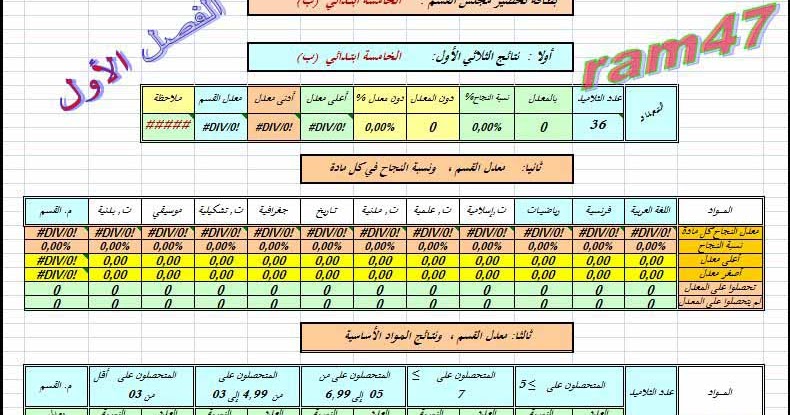 بطاقة تحضير مجلس القسم : الخامسة ابتدائي (ب)
الفصل الأول
ram47
أولا : نتائج الثلاثي الأول: الخامسة ابتدائي (ب)
التعداد عدد التلاميذ بالمعدل نسبة النجاح% دون المعدل دون معدل % أعلى معدل أدنى معدل معدل القسم ملاحظة
36 0 0,00% 0 0,00% #DIV/0! #DIV/0! #DIV/0! #####
ثانيا: معدل القسم ، ونسبة النجاح في كل مادة
المـواد اللغة العربية فرنسية رياضيات ت,إسلامية ت, علمية ت, مدنية تاريخ جغرافية ت, تشكيلية موسيقي ت, بدنية م. القسم
معدل النجاح كل مادة #DIV/0! #DIV/0! #DIV/0! #DIV/0! #DIV/0! #DIV/0! #DIV/0! #DIV/0! #DIV/0! #DIV/0! #DIV/0! #DIV/0!
نسبة النجاح 0,00% 0,00% 0,00% 0,00% 0,00% 0,00% 0,00% 0,00% 0,00% 0,00% 0,00% 0,00%
أعلى معدل 0,00 0,00 0,00 0,00 0,00 0,00 0,00 0,00 0,00 0,00 0,00 #DIV/0!
أصغر معدل 0,00 0,00 0,00 0,00 0,00 0,00 0,00 0,00 0,00 0,00 0,00 #DIV/0!
تحصلوا على المعدل 0 0 0 0 0 0 0 0 0 0 0 0
لم يتحصلوا على المعدل 0 0 0 0 0 0 0 0 0 0 0 0
ثالثا: معدل القسم ، ونتائج المواد الأساسية
المـواد عدد التلاميذ المتحصلون على ≥5 المتحصلون على ≥ 7 المتحصلون على من 05 إلى 6,99 المتحصلون على من 4,99 إلى 03 المتحصلون على أقل من 03 م. القسم
العدد النسبة العدد النسبة العدد النسبة العدد النسبة العدد النسبة